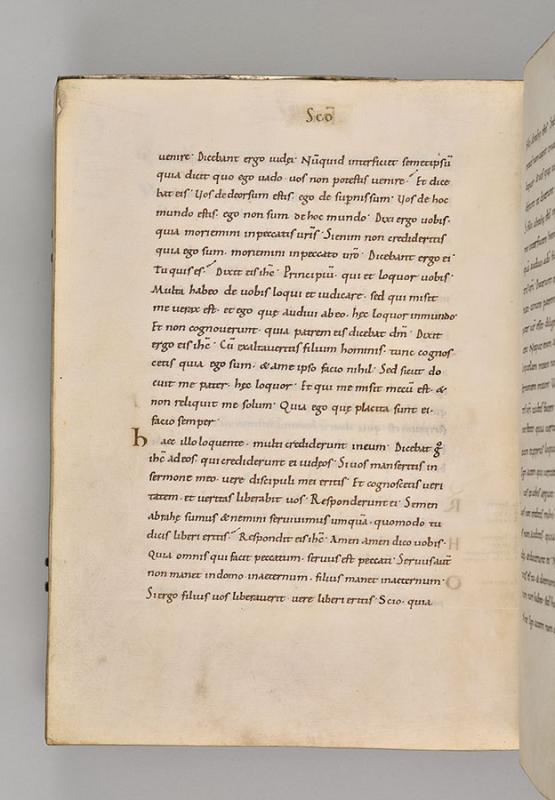 Scd̄
venire· Dicebant ergo iudei· Nūquid interficiet semetipsū
quia dicit quo ego vado· vos non potestis venire· Et dice
bat eis· Vos dedeorsum estis· ego de supnis sum· Vos de hoc
mundo estis· ego non sum de hoc mundo· Dixi ergo vobis·
quia moriemini inpeccatis urīs· Sienim non credideritis
quia ego sum· moriemini inpeccato urō· Dicebant ergo ei·
Tu quis es· Dixit eis ihc̄· Principiū· qui et loquor vobis·
Multa habeo de vobis loqui et iudicare· sed qui misit
me verax est· et ego quę audivi abeo· hęc loquor inmundo·
Et non cognoverunt· quia patrem eis dicebat dm̄· Dixit
ergo eis ihc̄· Cū exaltaveritis filium hominis· tunc cognos
cetis quia ego sum· & ame ipso facio nihil· Sed sicut do
cuit me pater· hęc loquor· Et qui me misit mecū est· &
non reliquit me solum· Quia ego quę placita sunt ei·
facio semper·
haec illo loquente· multi crediderunt ineum· Dicebat g̊
ihc̄ adeos· qui crediderunt ei iudęos· Si vos manseritis in
sermone meo· vere discipuli mei eritis· Et cognoscetis veri
tatem· et veritas liberabit vos· Responderunt ei· Semen
abrahę sumus & nemini servivimus umquā· quomodo tu
dicis liberi eritis· Respondit eis ihc̄· Amen amen dico vobis·
Quia omnis qui facit peccatum· servus est peccati· Servus aut̄
non manet indomo inaeternum· filius manet inaeternum·
Si ergo filius vos liberaverit· vere liberi eritis· Scio· quia